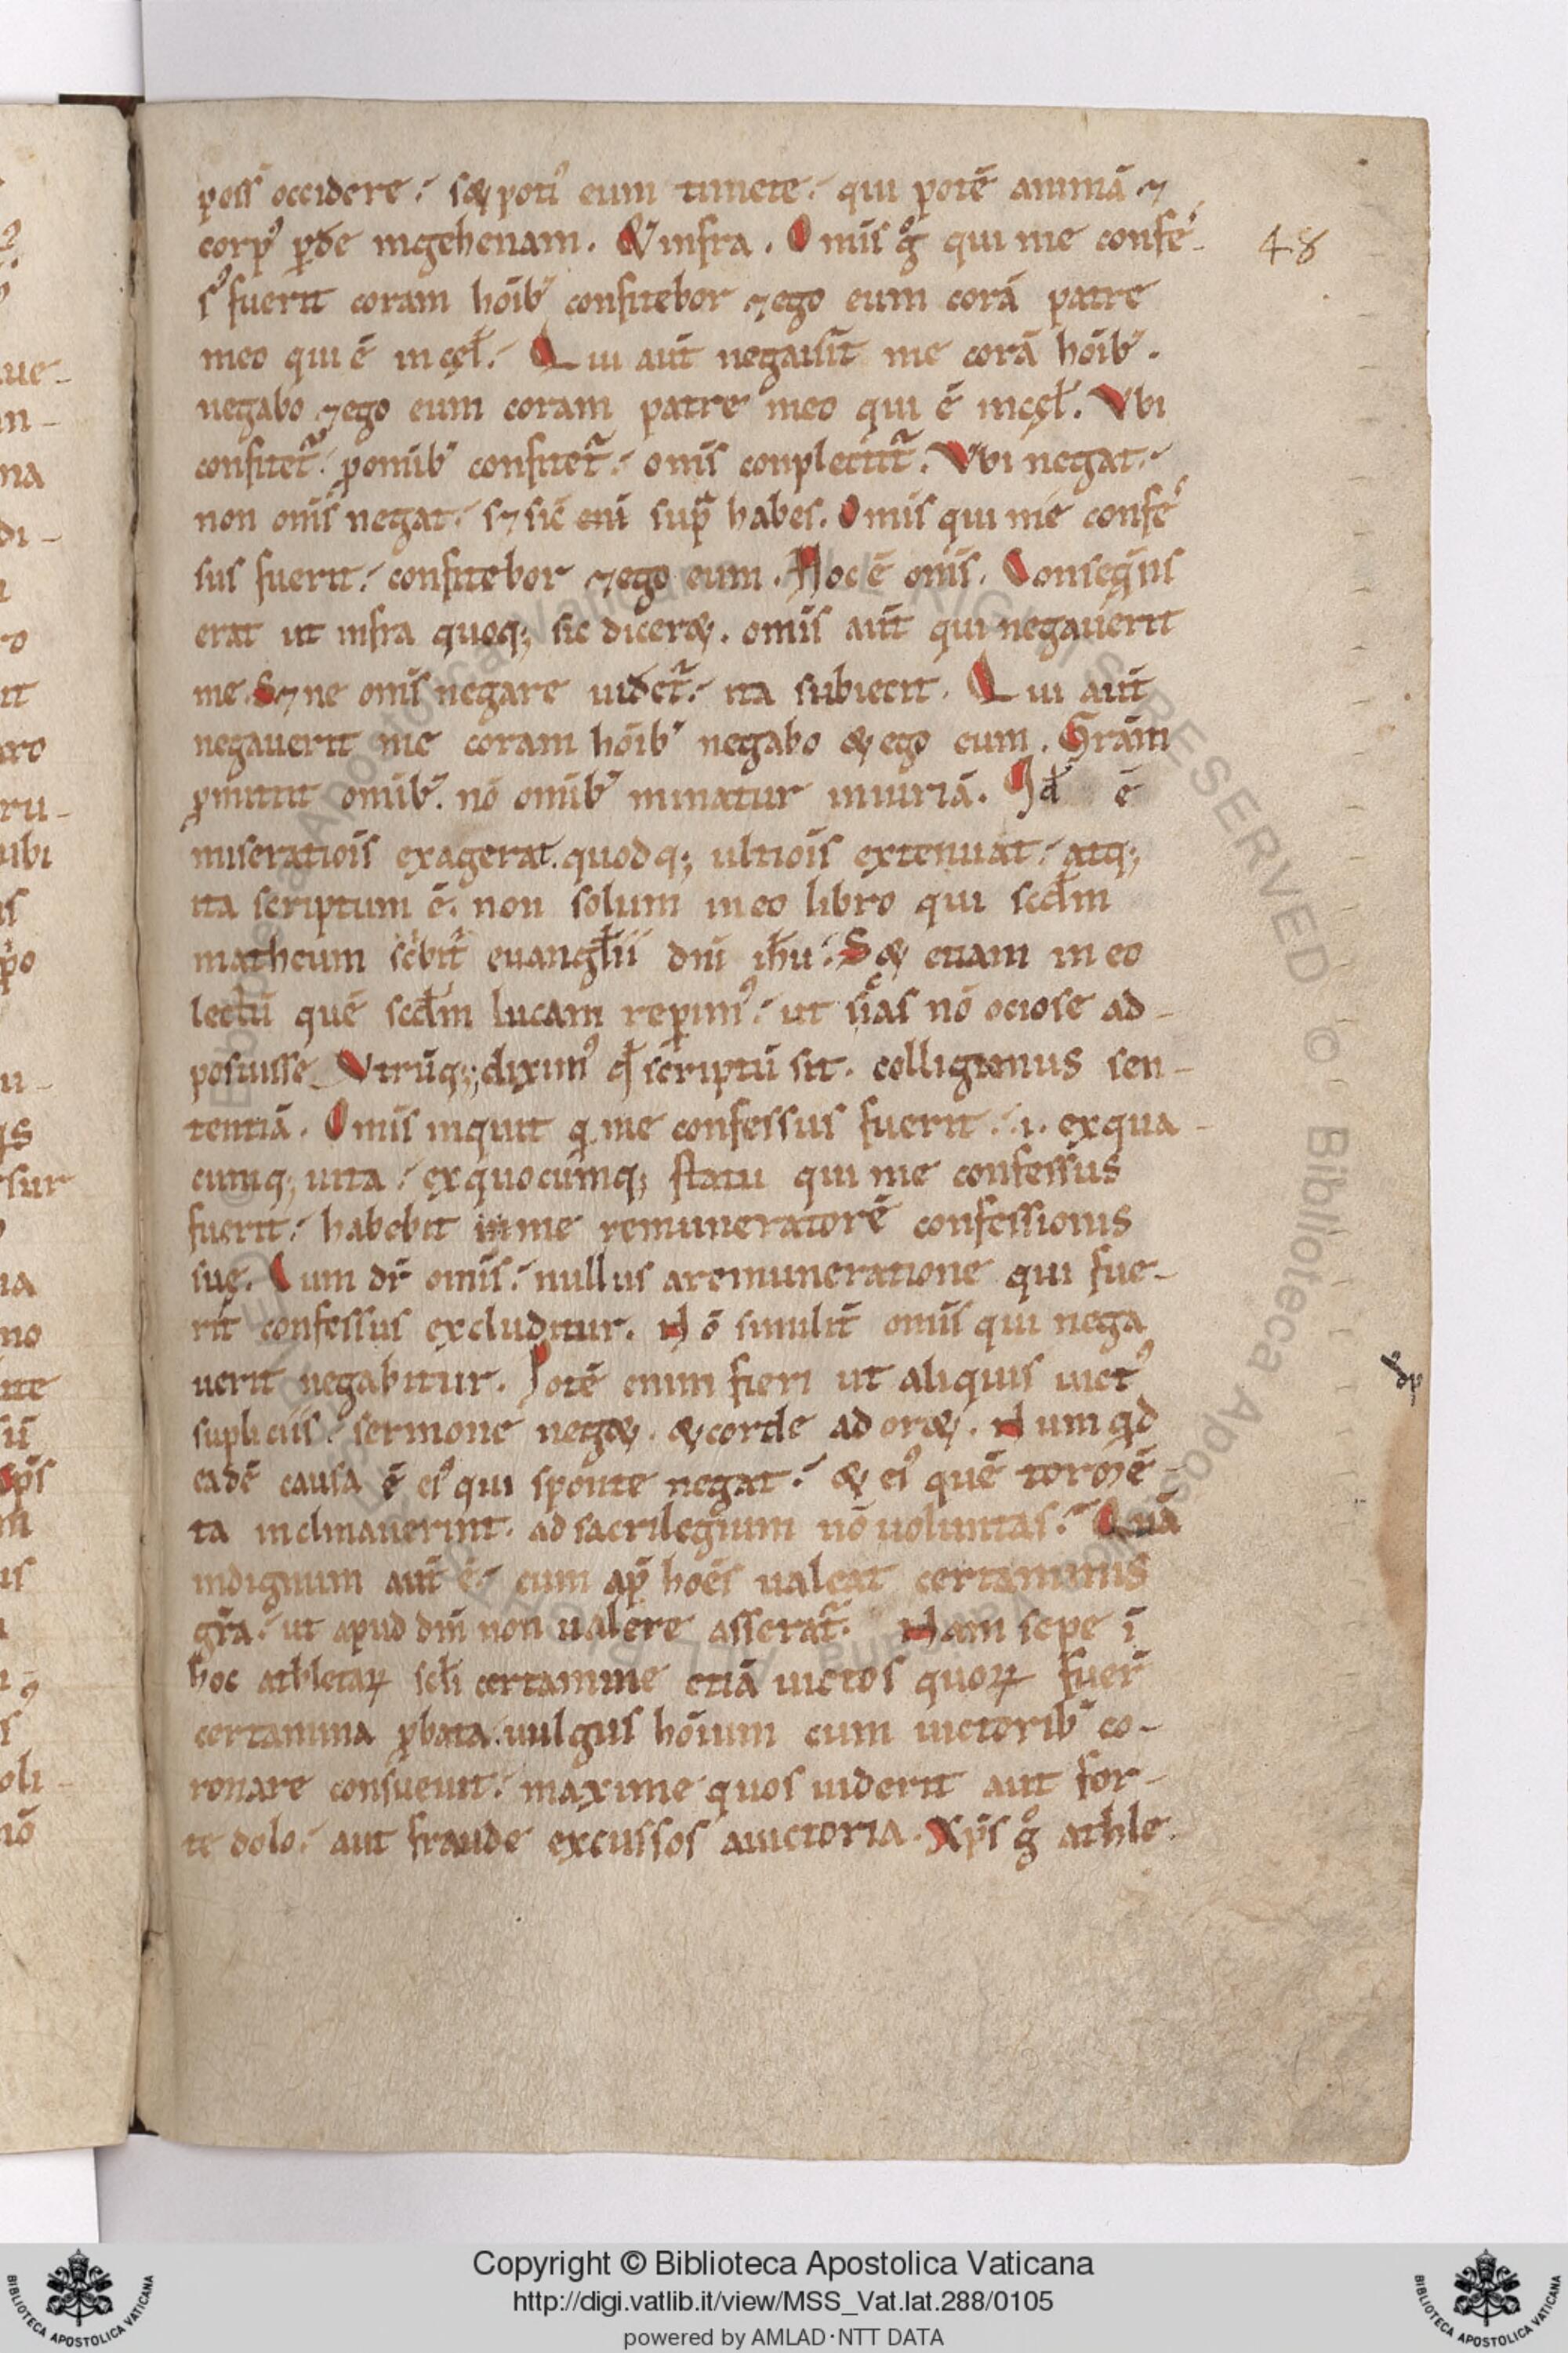 poss occidere. s& poti᾽ eum timete. qui potē animā ⁊
corp᾽ ꝑde ingehenam. & infra. Omīs g̊ qui me confes-
s᾽ fuerit coram hoīb᾽ confitebor ⁊ ego eum corā patre
meo qui ē in cęl̄. Qui aūt negauīt me corā hoīb᾽.
negabo ⁊ ego eum coram patre meo qui ē in cęl̄. Vbi
confitet̄. ꝓ omīb᾽ confitet̄. omīs conplectit̄. Vbi negat.
non omīs negat. s⁊ sic enī supª habes. Omīs qui me confes
sus fuerit. confitebor ⁊ ego eum. Hoc ē omīs. Conseq̄ns
erat ut infra quoq; sic dicer&. omīs aūt qui negauerit
me. S⁊ ne omīs negare uidet̄. ita subiecit. Qui aūt
negauerit me coram hoīb᾽ negabo & ego eum. Grām
ꝓmittit omīb᾽. nō omīb᾽ minatur iniuriā. Id ē
miseratiois exagerat. quodq; ultiois extenuat. atq;
ita scriptum ē. non solum in eo libro qui scd̄m
matheum scͥbit̄ euangl̄ii dn̄i ih̄u. S& etiam in eo
lectū quē scd̄m lucam reperim᾽. ut scias nō ociose ad-
posuisse. Vtrūq; dixim᾽ qd̄ scriptū sit. colligamus sen-
tentiā. Omīs inquit q̇ me confessus fuerit. .i. exqua-
cumq; uita. exquocumq; statu qui me confessus
fuerit. habebit in me remuneratorē confessionis
suę. Cum dr̄ omīs. nullus aremuneratione qui fue-
rit confessus excluditur. Nō similit̄ omīs qui nega
uerit negabitur. Potē enim fieri ut aliquis uict᾽
supliciis. sermone neg&. & corde ador&. Numqd
eadē causa ē ei᾽ qui sponte negat. & ei᾽ quē tormē-
ta inclinauerint. ad sacrilegium nō uoluntas. Quā
indignum aūt ē. cum ap̄ hoēs ualeat certaminis
gr̄a. ut apud dm̄ non ualere asserat̄. Nam sepe ī
hoc athletaꝝ scl̄i certamine etiā uictos quoꝝ fuer̄
certamina ꝓbata. uulgus hoīum cum uictorib᾽ co-
ronare consueuit. maxime quos uiderit aut for-
te dolo. aut fraude excussos auictoria. Xp̄s g̊ athle
48
Copyright © Biblioteca Apostolica Vaticana
http://digi.vatlib.it/view/MSS_Vat.lat.288/0105
powered by AMLAD·NTT DATA
BIBLIOTECA APOSTOLICA VATICANA
BIBLIOTECA APOSTOLICA VATICANA